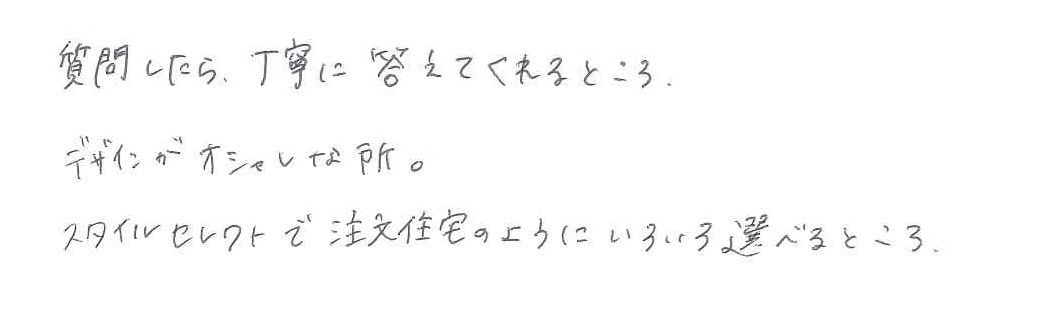 質問したら、丁寧に答えてくれるところ.
デザインがオシャレな所。
スタイルセレクトで注文住宅のようにいろいろ選べるところ.